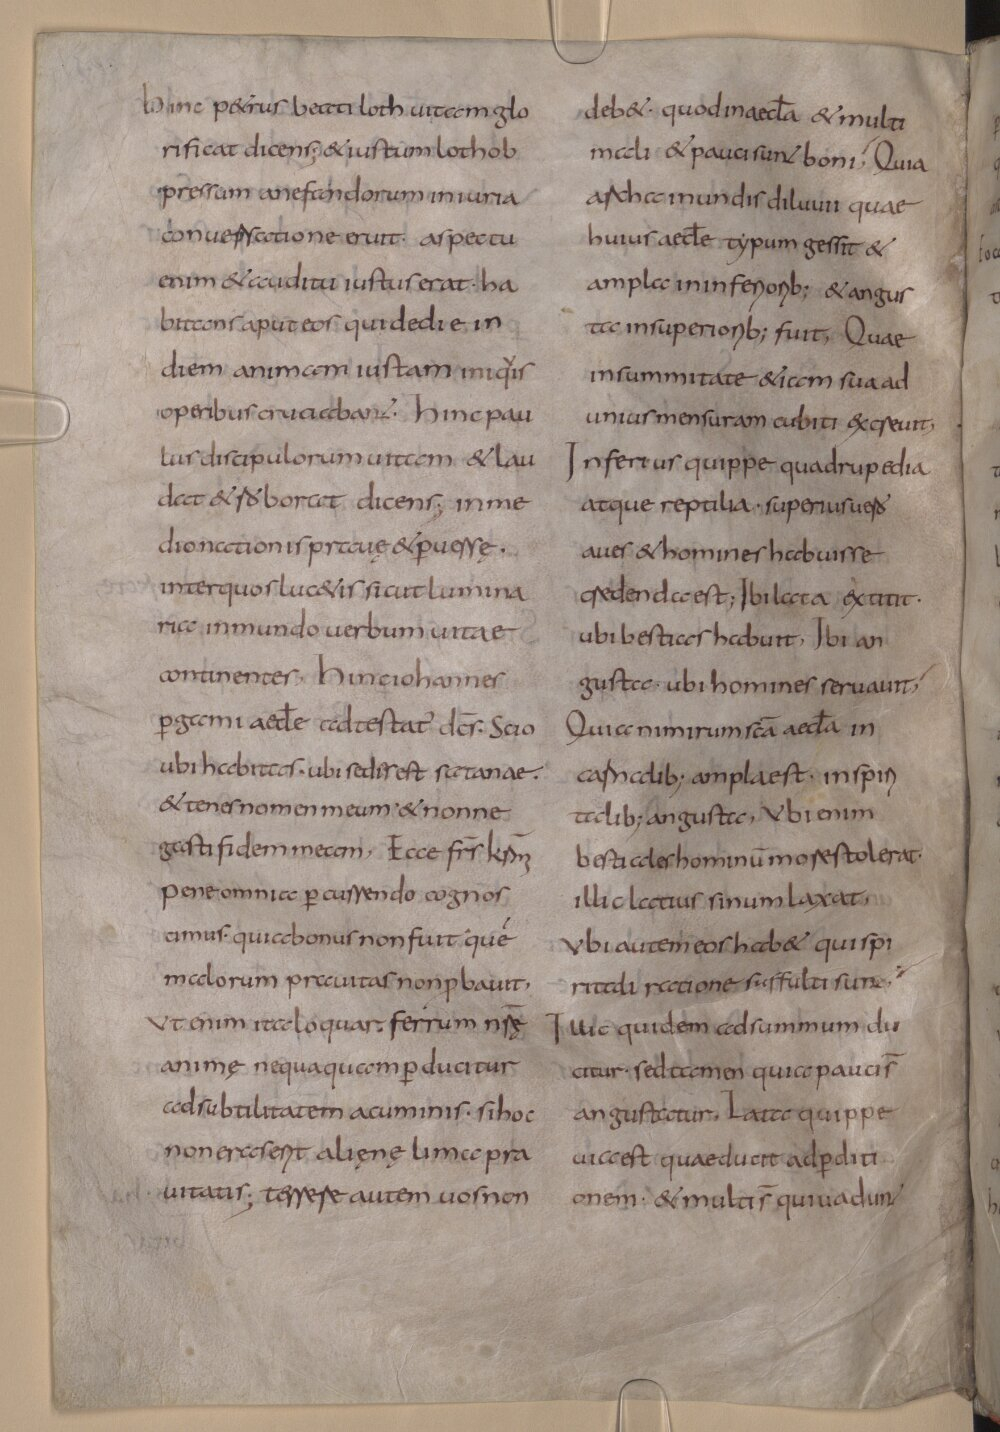 Hinc p&rus beati loth uitam glo
rificat dicens; &iustum loth ob
pressam anefandorum iniuria
conuersatione eruit· aspectu
enim &auditu iustus erat· ha
bitans aput eos qui dedie in
diem animam iustam iniquis
operibus cruciabant· Hinc pau
lus discipulorum uitam &lau
dat &roborat dicens; inme
dio nationis prauę &ꝑuersę·
interquos luc&is sicut lumina
ria inmundo uerbum uitae
continentes, Hinc iohannes
ꝑgami aecłe adtestat᷑ dc̄s· Scio
ubi habitas· ubi sedis est satanae·
&tenes nomen meum &nonne
gasti fidem meam, Ecce fr̄s kr̄m̄
pene omnia ꝑcurrendo cognos
cimus· quia bonus non fuit quē
malorum prauitas non ꝓbauit,
Vt enim ita loquar· ferrum nr̄ę
animę nequaquam ꝑducitur
adsubtilitatem acuminis· si hoc
non eraserit alienę lima pra
uitatis; terrere autem uos non
deb&· quod inaecła &multi
mali &pauci sunt boni, Quia
archa inundis diluuii quae
huius aecłe typum gessit &
ampla ininferiorib; &angus
ta insuperiorib; fuit, Quae
insummitate &iam sua ad
unius mensuram cubiti excreuit,
Inferius quippe quadrupedia
atque reptilia· superius uero
aues &homines habuisse
credenda est; Ibi lata extitit·
ubi bestias habuit, Ibi an
gusta· ubi homines seruauit,
Quia nimirum sc̄a aecła in
carnalib; ampla est· inspiri
talib; angusta, Vbi enim
bestiales hominū mores tolerat·
illic latius sinum laxat,
Vbi autem eos hab& qui spi
ritali ratione suffulti sunt,
Illic quidem adsummum du
citur· sed tamen quia paucis̄
angustatur, Lata quippe
uia est quae ducit adꝑditi
onem· &multis̄ qui uadunt